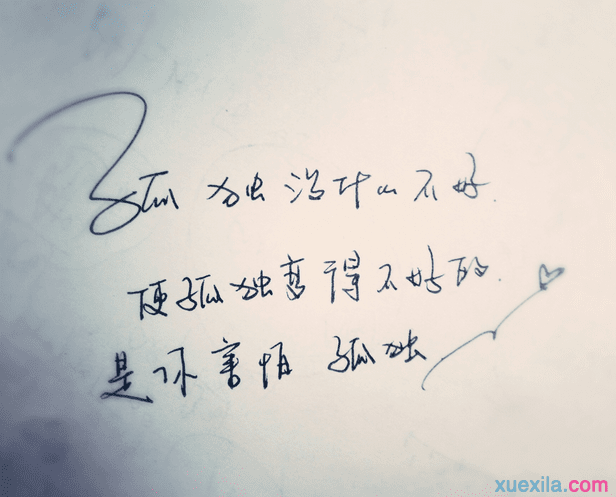 孤独没什么不好.
使孤独变得不好的.
是你害怕孤独
xuexila.com